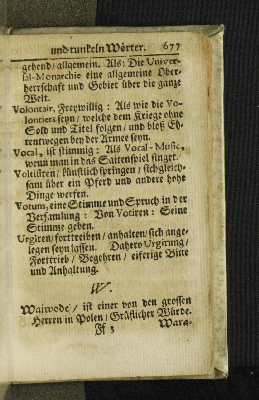 und tunckeln Wörter. 677
gehend/allgemein. Als: Die Univer-
sal-Monarchie eine allgemeine Ober-
herrschaft und Gebiet über die ganze
Welt.
Volontair, Freywillig: Als wie die Vo-
lontiers seyn/ welche dem Kriege ohne
Sold und Titel folgen/ und bloß Eh-
rentwegen bey der Armee seyn.
Vocal, ist stimmig: Als Vocal-Music,
wenn man in das Saitenspiel singet.
Voltisiren/ künstlich springen/ sich gleich-
sam über ein Pferd und andere hohe
Dinge werfen.
Votum, eine Stimme und Spruch in der
Versamlung: Von Votiren: Seine
Stimme geben.
Urgiren/ forttreiben/ anhalten/ sich ange-
legen seyn lassen. Dahero Urgirung/
Forttrieb/ Begehren/ eiferige Bitte
und Anhaltung.
W.
Waiwode/ ist einer von den grossen
Herren in Polen/ Gräflicher Würde.
Ff 3 Wara-